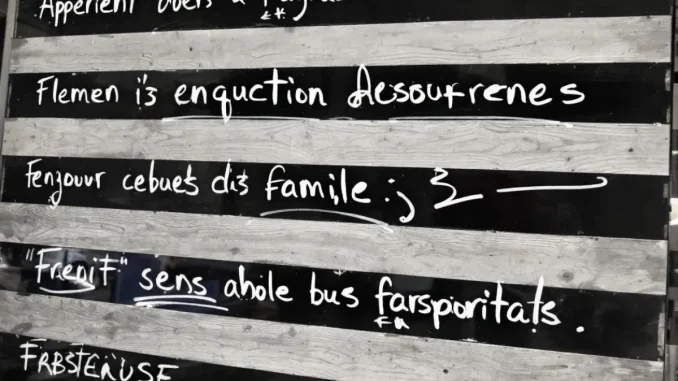 Apperient
Flemen is enquction desoufrenes
Fenzouur cebuets dis famile :;
"Frenit" sens ahole bus farsporitats.
FRBSTERUSE